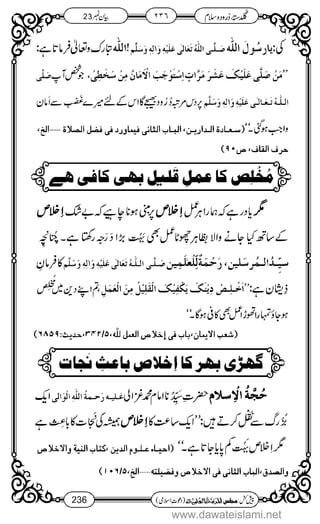 بیان نمبر 23 ۲۳۶ گلدستۂ دُرُود و سلام
کی: یارسولَ اللہ صَلَّی اللہُ تَعَالٰی عَلَیْہِ وَاٰلِہٖ وَسَلَّم! اللہ تَبَارَک وتعالٰی فرماتا ہے:
”مَنْ صَلَّی عَلَیْکَ عَشَرَ مَرَّاتٍ اِسْتَوْجَبَ الْاَمَانَ مِنْ سَخَطِیْ، جو شخص آپ صَلَّی
اللہُ تَعَالٰی عَلَیْہِ وَاٰلِہٖ وَسَلَّم پر دس مرتبہ دُرُود بھیجے گا اس کے لئے میرے غَضَب سے اَمان
واجب ہوگئی۔“ (سعادۃ الدارین، الباب الثانی فیماورد فی فضل الصلاۃ.....الخ،
حرف القاف، ص۹۰)
مُخْلِص کا عمل قَلیل بھی کافی ہے
مگر یاد رہے کہ ہمارا ہر عمل اِخلاص پر مبنی ہونا چاہئے کہ بے شک اِخلاص
کے ساتھ کیا جانے والا بظاہر چھوٹا عمل بھی بَہُت بڑا دَرَجہ رکھتا ہے۔ چُنانچِہ
سیِّدُ المُرسَلین، رَحْمَۃٌ لِّلْعٰلَمِیْن صَلَّی اللہُ تَعَالٰی عَلَیْہِ وَاٰلِہٖ وَسَلَّم کا فرمانِ
ذیشان ہے: ”اَخْلِصْ دِیْنَکَ یَکْفِیْکَ الْقَلِیْلُ مِنَ الْعَمَلِ، تم اپنے دین میں مُخْلِص
ہوجاؤ تمہارا تھوڑا عمل بھی کافی ہوگا۔“
(شعب الایمان، باب فی إخلاص العمل للہ، ۳۴۲/۵، حدیث: ۶۸۵۹)
گھڑی بھر کا اِخلاص باعثِ نَجات
حُجَّۃُ الْاِسلام حضرتِ سَیِّدُنا امام محمد غزالی عَلَیْہِ رَحْمَۃُ اللہِ الْوَالِی ایک
بُزُرگ سے نَقْل کرتے ہیں: ”ایک ساعت کا اِخلاص ہمیشہ کی نَجات کا باعث ہے
مگر اِخلاص بَہُت کم پایا جاتا ہے۔“ (احیاء علوم الدین، کتاب النیۃ والاخلاص
والصدق، الباب الثانی فی الاخلاص وفضیلتہ.....الخ، ۱۰۶/۵)
236
www.dawateislami.net